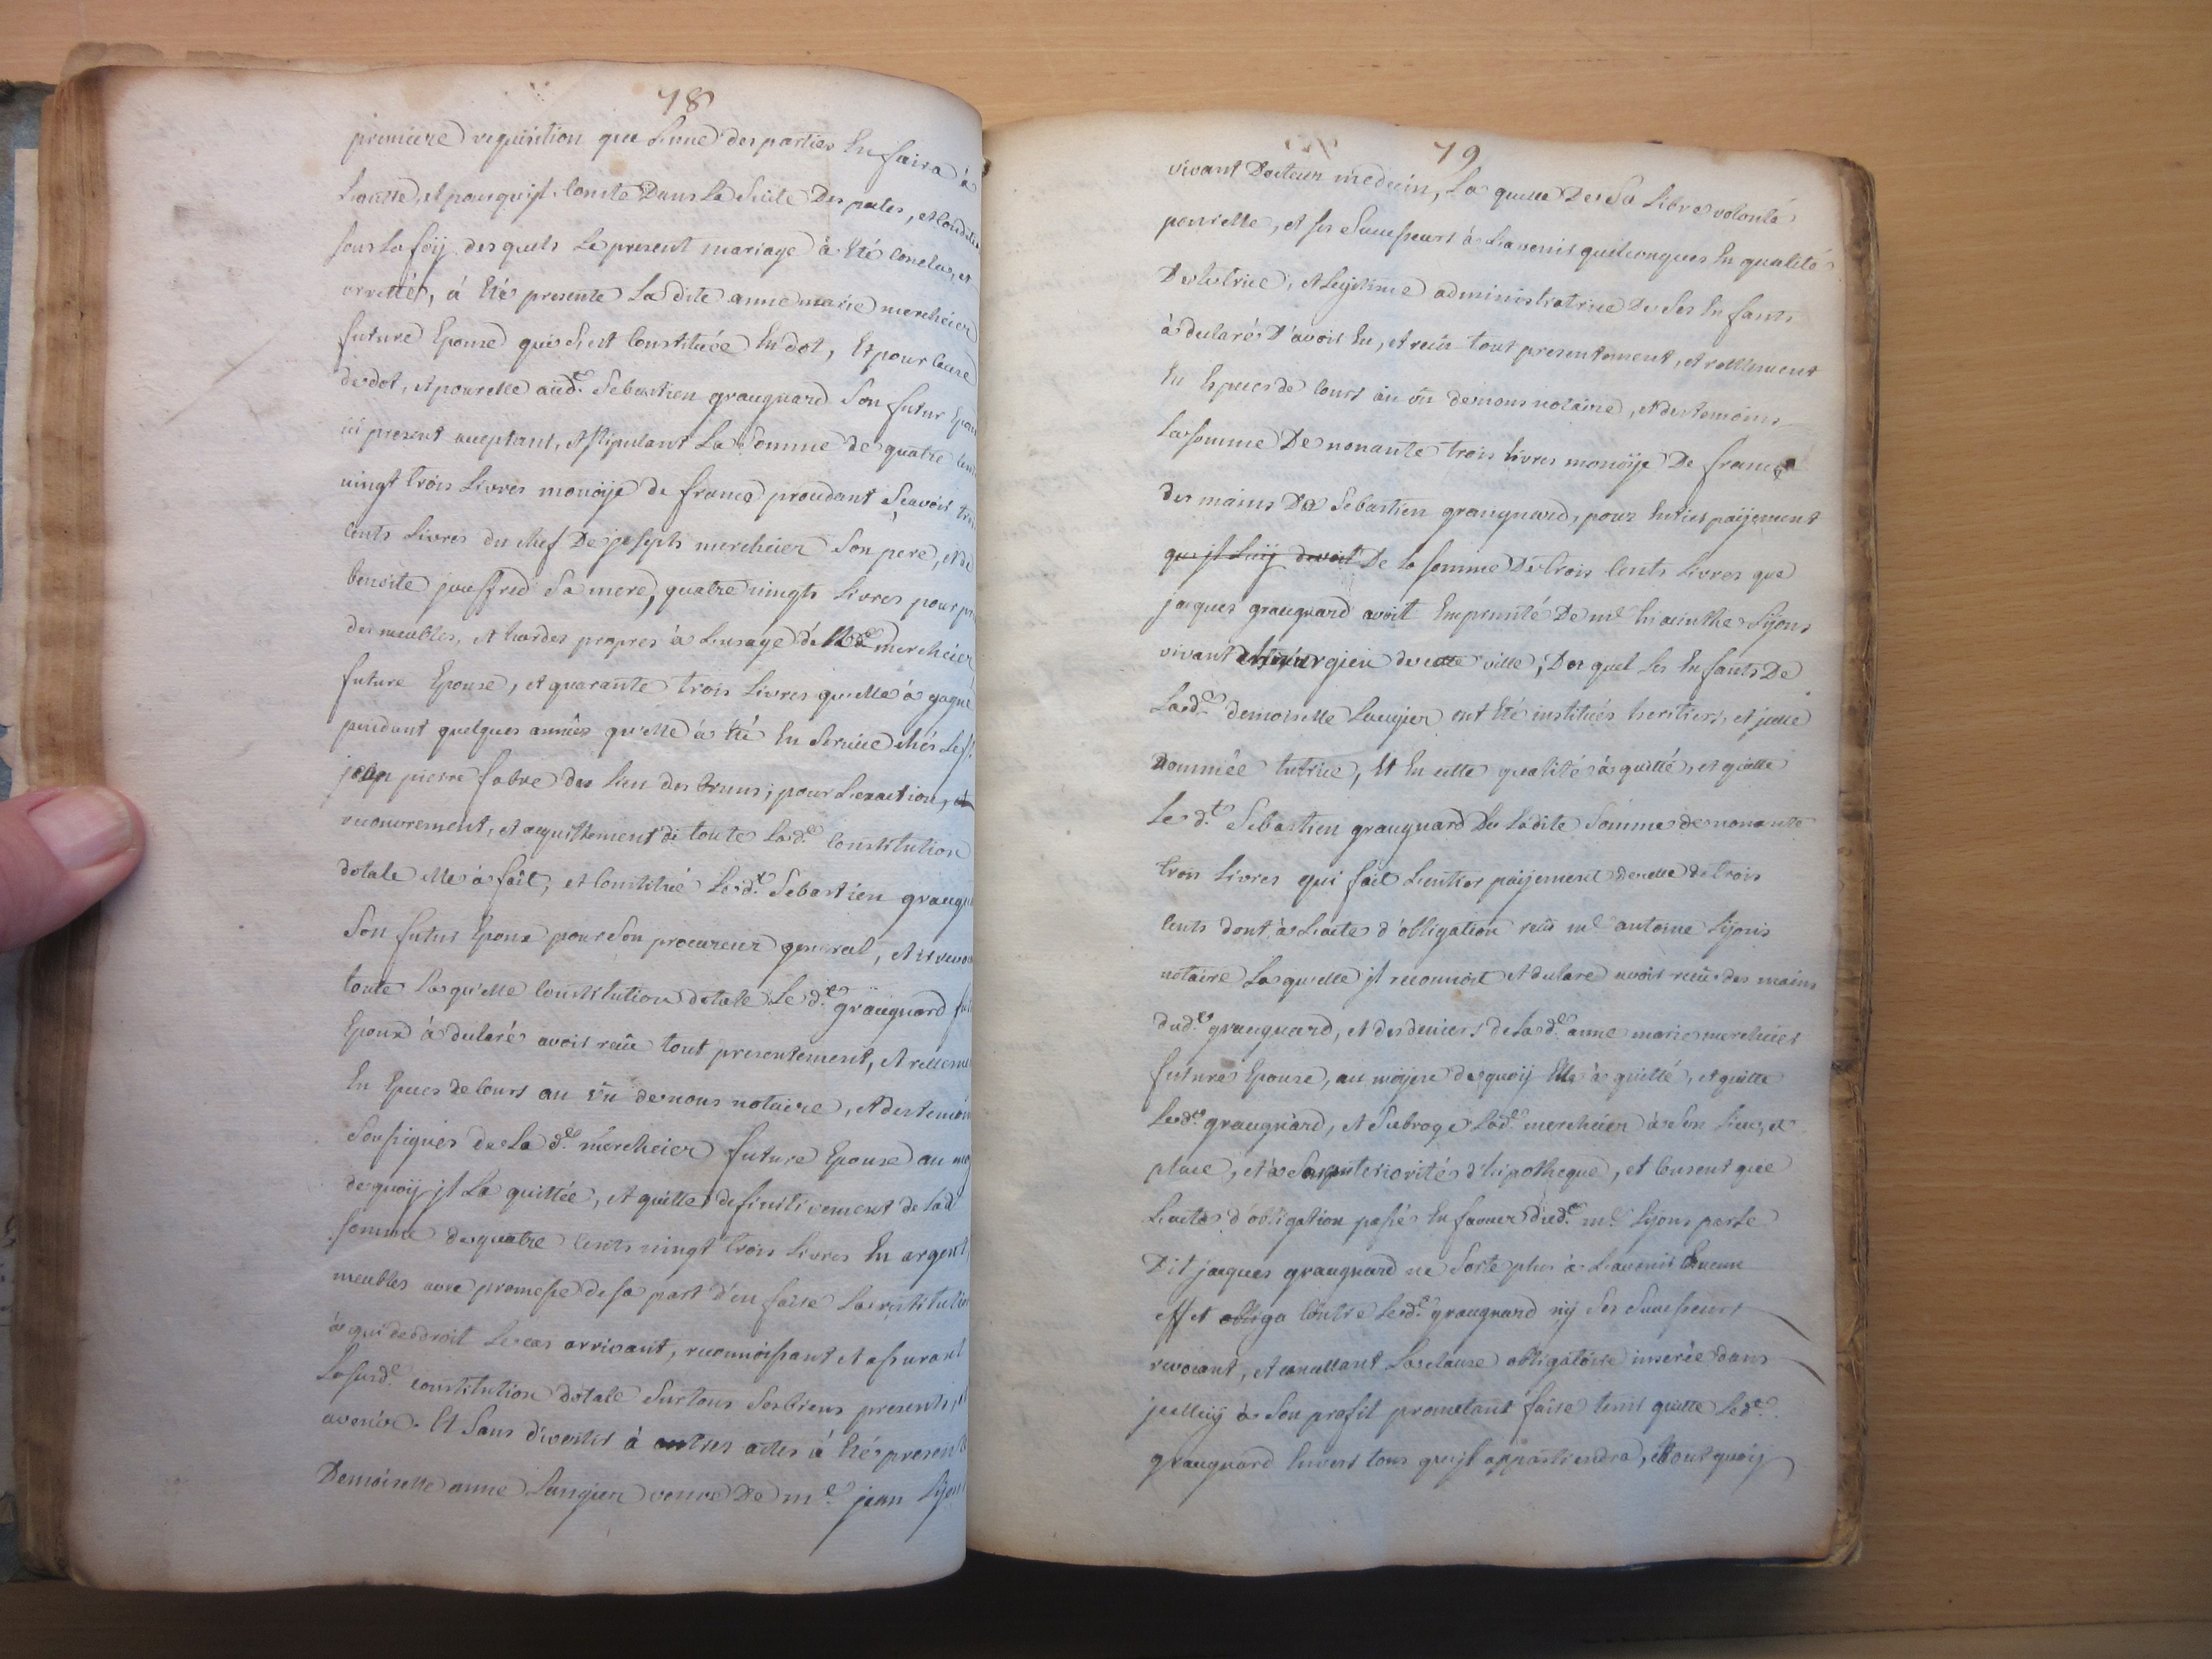 78
premiere requisition que Lune des parties En faira à
Lautre, et pour qu'jl Conste Dans La Suite Des pactes, et Condit
sous La foÿ des quels Le present mariage à Eté Conclu, et
arretté, á Eté presente La dite anne marie mercheier
future Epouse qui S'est Constituée En dot, Et pour Cause
de dot, et pour elle aud.t Sebastien grauguard Son futur Epou
ici present aceptant, et stipulant La Somme de quatre Cent
vingt trois Livres monoÿe de france procedant Scavoir troi
Cents Livres du chef De joseph mercheier Son pere, et de
benoite jouffred Sa mere, quatre vingts Livres pour pr
des meubles, et hardes propres à Lusage de Lad.e mercheier
future Epouse, et quarante trois Livres quelle à gagné
pendant quelques années qu'elle á Eté En Service chés Le S.r
jean pierre fabre du Lieu des bruns; pour Lexaction, et
recouvrement, et acquittement de toute Lad.e Constitution
dotale elle à fait, et Constitué Led.t Sebastien graugu
Son futur Epoux pour Son procureur general, et irrevoc
toute Laqu'elle Constitution dotale Le d.t grauguard fut
Epoux à declaré avoir recu tout presentement, et reelleme
En Epeces de Cours au vû de nous notaire, et des temoin
Sousignés de La d.e mercheier future Epouse au moy
de quoÿ jl La quittée, et quitte definitivement de Lad
somme de quatre Cents vingt trois Livres En argent,
meubles avec promesse de sa part d'en faire La restitution
à qui de droit Le cas arrivant, reconnoissant et assurant
La susd.e constitution dotale Sur tous Ses biens presents, et
avenir. Et Sans divertir à autres actes à Eté presente
Demoiselle anne Laugier veuve De m.e jean Lÿons
79
vivant Docteur medecin, La quelle De Sa Libre volonté
pour elle, et ses Successeurs à Lavenir quelconques En qualité
De tutrice, et Legitime administratrice De Ses Enfants
à declaré D'avoir Eu, et reçu tout presentement, et reellement
En Epeces de Cours au vû de nous notaire, et des temoins
La somme De nonante trois Livres monoÿe De france
des mains De Sebastien grauguard, pour Entier paÿement
qu'jl Luÿ devoit De la somme De trois Cents Livres que
jacques grauguard avoit Emprunté De m.e hiacinthe Lÿons
vivant chirurgien de cette ville, Du quel Les Enfants De
Lad.e demoiselle Laugier ont Eté institués heritiers, et jcelle
nommée tutrice, Et En cette qualité à quitté, et quitte
Le d.t Sebastien grauguard De Ladite Somme de nonante
trois Livres qui fait L'entier paÿement de celle de trois
Cents dont à L'acte d'obligation recu m.e antoine Lÿons
notaire Laqu'elle jl reconnoit et declare avoir recue des mains
dud.t grauguard, et des deniers de La d.e anne marie mercheier
future Epouse, au moÿen de quoÿ Elle à quitté, et quitte
Led.t grauguard, et Subroge Lad.e mercheier à Son Lieu, et
place, et à Son anteriorité d'hipotheque, et Consent que
L'acte d'obligation passé En faveur dud.t m.e Lÿons par Le
Dit jacques grauguard ne Sorte plus à L'avenir Aucune
effet obliga Contre Led.t grauguard nÿ Ses Successeurs
revocant, et anullant La clause obligatoire inserée dans
jcelluÿ à Son profit prometant faire tenir quitte Led.t
grauguard Envers tous qu'jl appartiendra, Et tout quoÿ